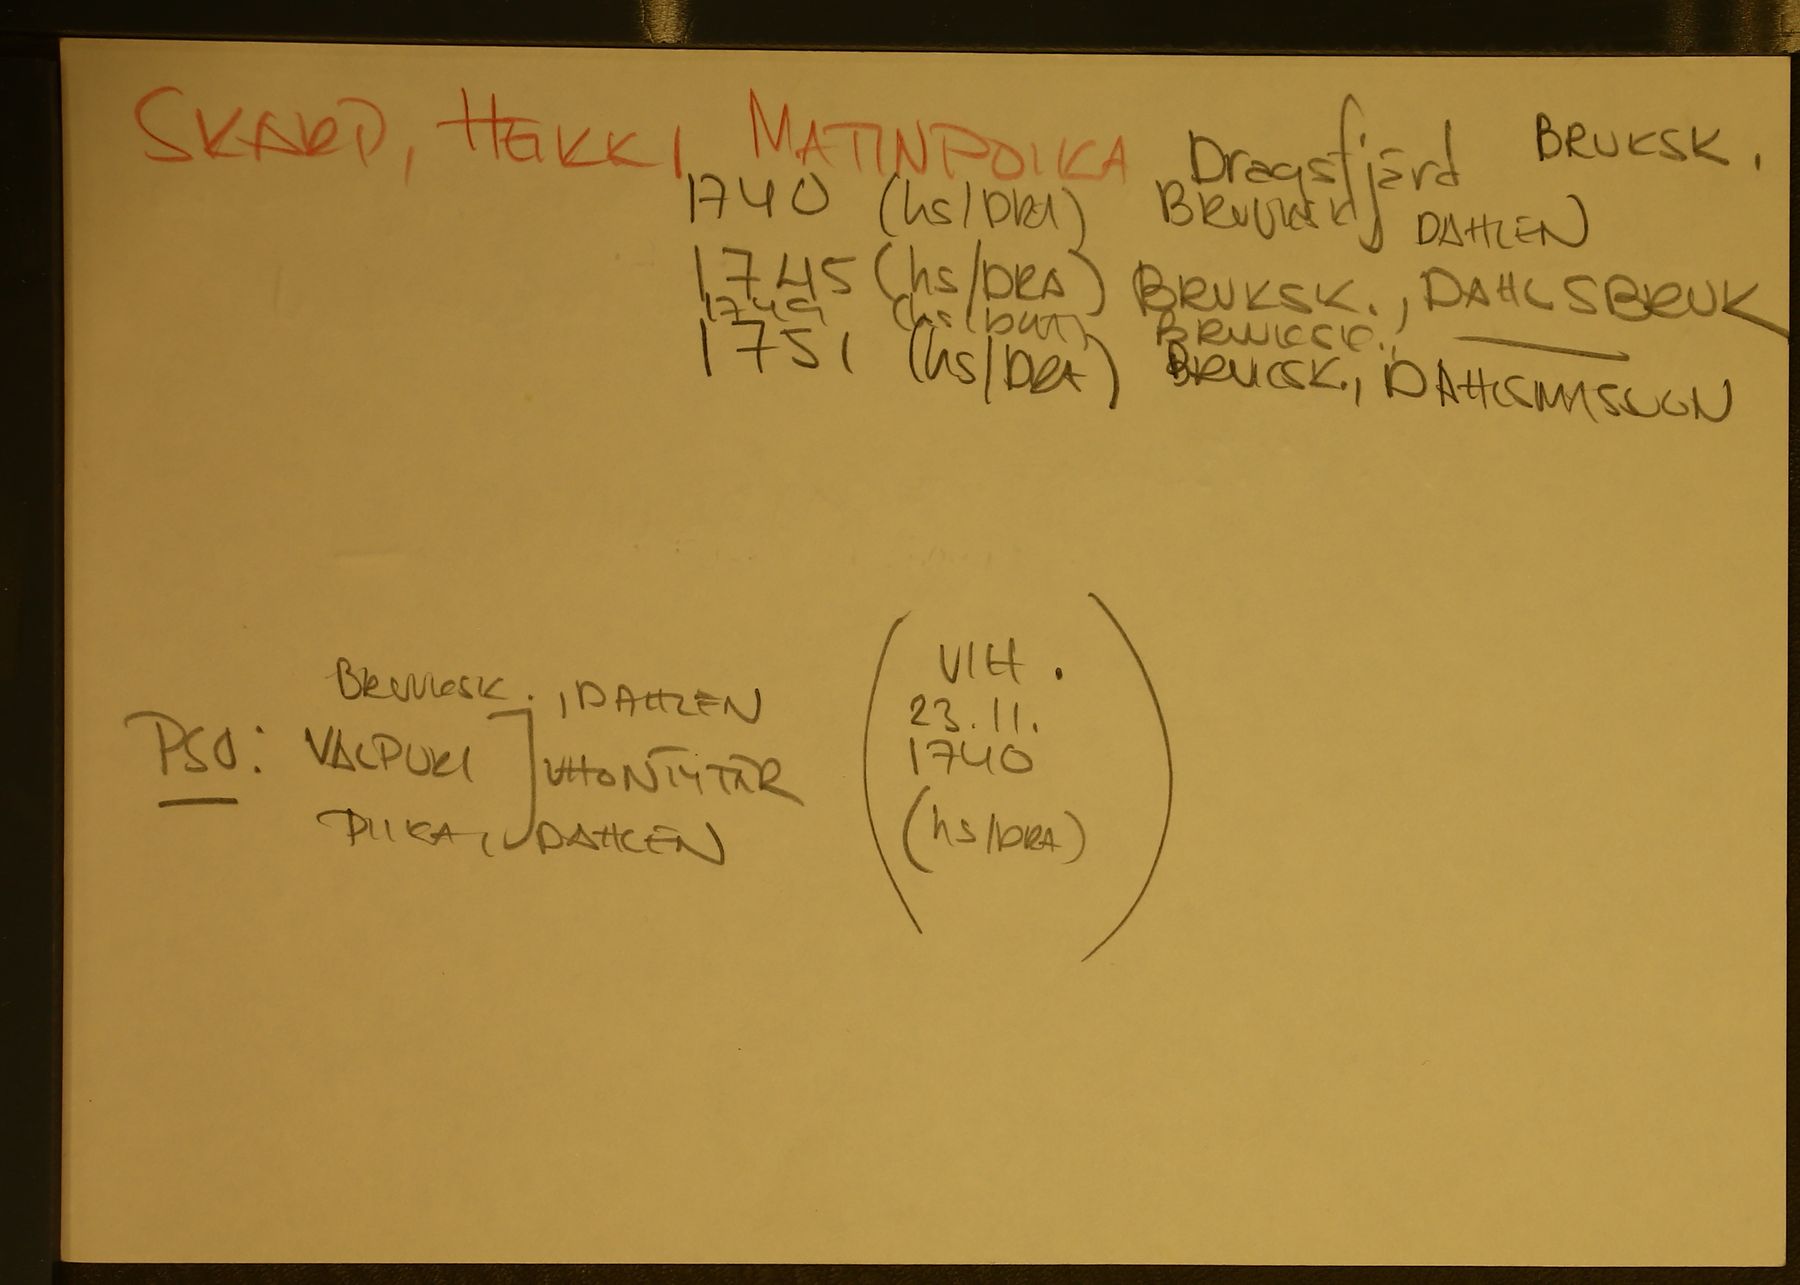 SKARP, HEIKKI MATINPOIKA Dragsfjärd BRUKSK.
1740 (hs/DRA) BRUUKSK, DAHLEN
1745 (hs/DRA) BRUKSK., DAHLSBRUK
1749 (hs/DRA) BRUKSK., —
1751 (hs/DRA) BRUKSK., DAHLSMASUGN
BRUUKSK., DAHLEN
PSO: VALPURI UHONTYTÄR
PIIKA, DAHLEN
(VIH.
23.11.
1740
(hs/DRA))